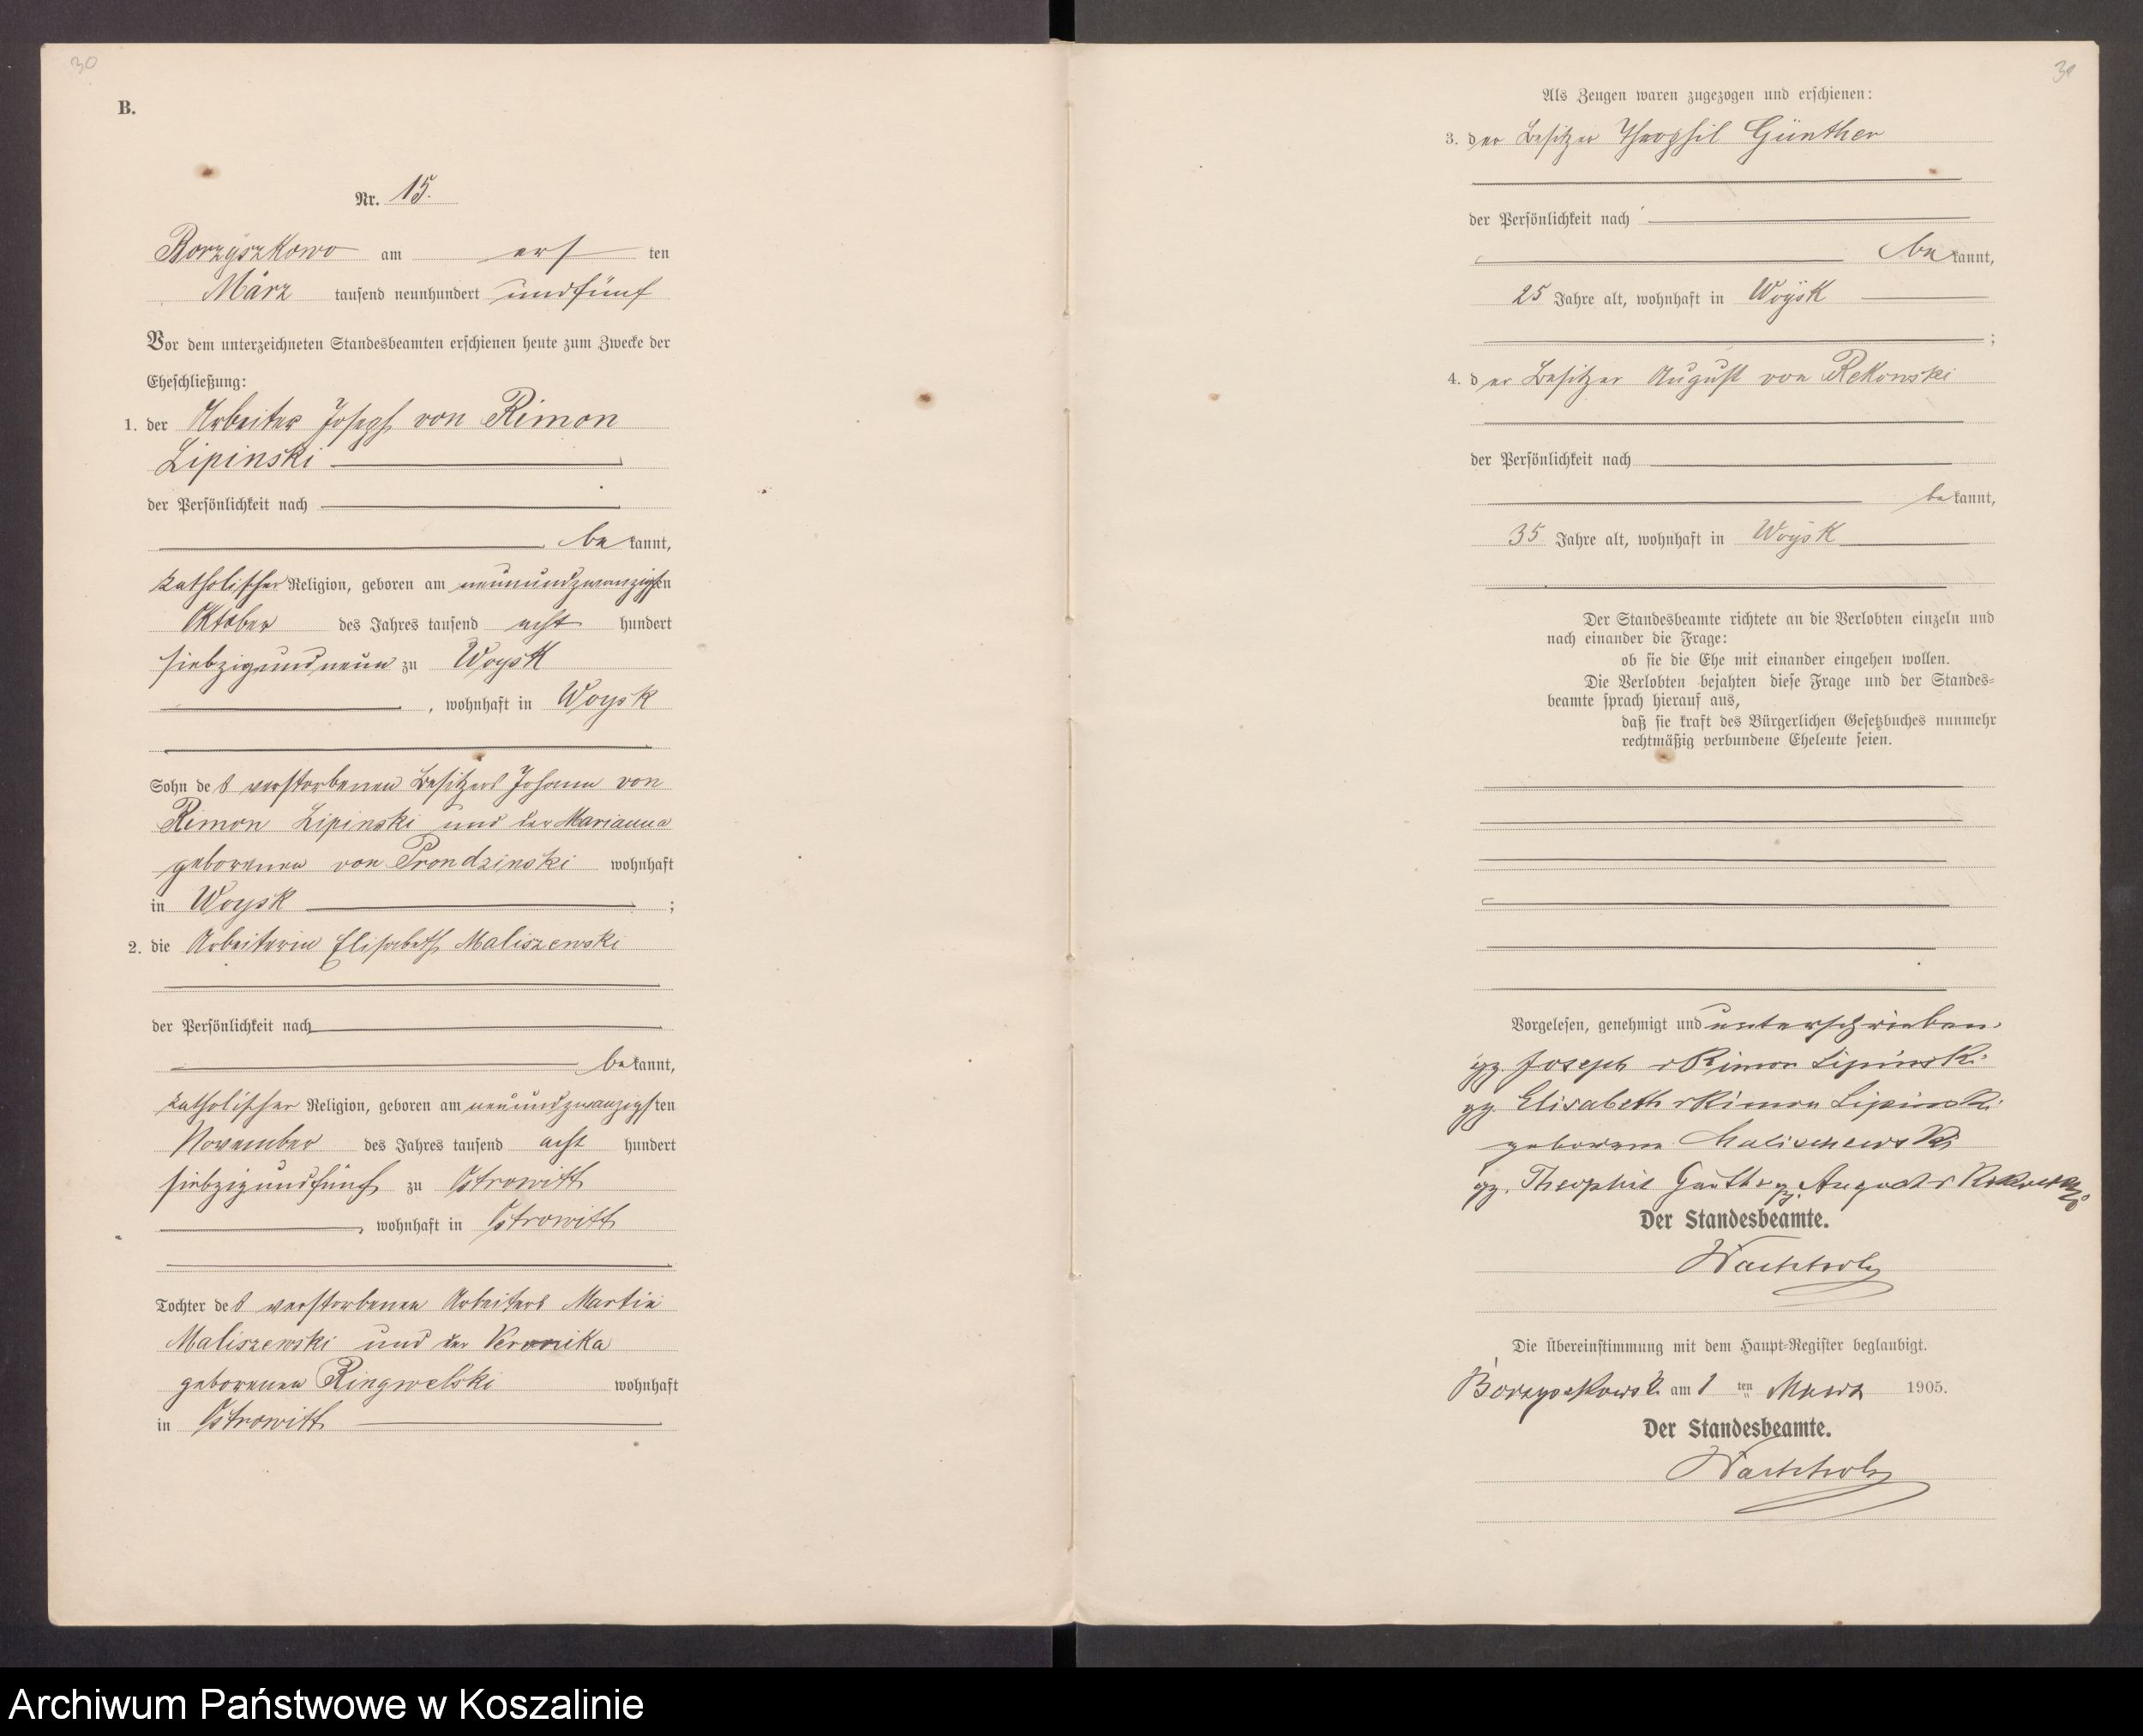 30
B.
Nr. 15.
Borzyszkowo am erſ ten
März tauſend neunhundert undfünf
Vor dem unterzeichneten Standesbeamten erſchienen heute zum Zwecke der
Eheſchließung:
1. der Arbeiter Joseph von Rimon
Lipinski
der Perſönlichkeit nach
be kannt,
katholischer Religion, geboren am neunundzwanzigsten
Oktober des Jahres tauſend acht hundert
siebzigundneun zu Woysk
, wohnhaft in Woysk
Sohn des verstorbenen Besitzers Johann von
Rimon Lipinski und der Marianna
geborenen von Prondzinski wohnhaft
in Woysk ;
2. die Arbeiterin Elisabeth Maliszewski
der Perſönlichkeit nach
be kannt,
katholischer Religion, geboren am neunundzwanzigsten
November des Jahres tauſend acht hundert
siebzigundfünf zu Ostrowitt
, wohnhaft in Ostrowitt
Tochter des verstorbenen Arbeiters Martin
Maliszewski und der Veronika
geborenen Ringwelski wohnhaft
in Ostrowitt
Als Zeugen waren zugezogen und erſchienen:
3. der Besitzer Theophil Günther
der Perſönlichkeit nach
be kannt,
25 Jahre alt, wohnhaft in Woysk
;
4. der Besitzer August von Rekowski
der Perſönlichkeit nach
be kannt,
35 Jahre alt, wohnhaft in Woysk
Der Standesbeamte richtete an die Verlobten einzeln und
nach einander die Frage:
ob ſie die Ehe mit einander eingehen wollen.
Die Verlobten bejahten dieſe Frage und der Standes-
beamte ſprach hierauf aus,
daß ſie kraft des Bürgerlichen Geſetzbuches nunmehr
rechtmäßig verbundene Eheleute ſeien.
Vorgeleſen, genehmigt und unterschrieben.
gz. Joseph v Rimon Lipinski
gz. Elisabeth v Rimon Lipinski
geborene Malischewski
gz. Theophil Günther gz. August v Rekowski
Der Standesbeamte.
Wachholz
Die Übereinſtimmung mit dem Haupt-Regiſter beglaubigt.
am 1 ten März 1905.
Der Standesbeamte.
Wachholz
Archiwum Państwowe w Koszalinie